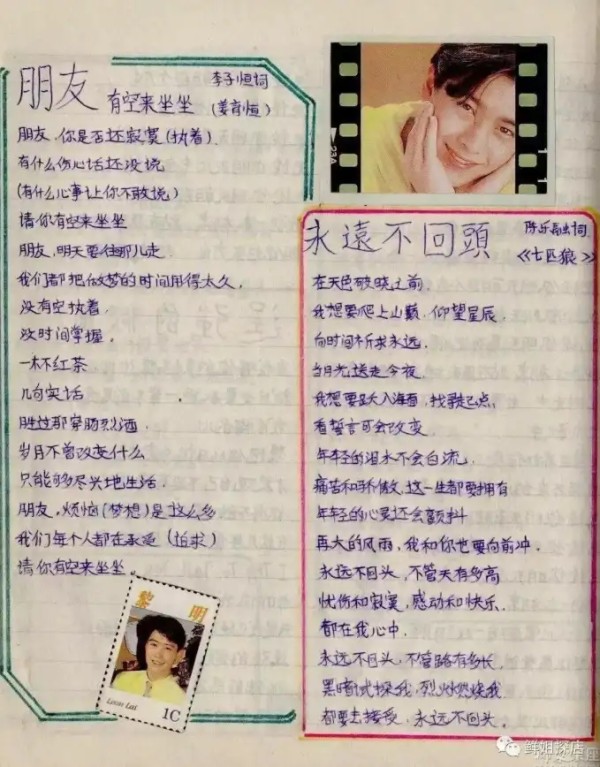 朋友 李子恒词
有空来坐坐 (姜育恒)
朋友,你是否还寂寞(执着)
有什么伤心话还没说
(有什么心事让你不敢说)
请你有空来坐坐
朋友,明天要往那儿走
我们都把做梦的时间用得太久,
没有空执着,
没时间掌握。
一杯红茶
几句实话
胜过那穿肠烈酒,
岁月不曾改变什么
只能够尽兴地生活,
朋友,烦恼(梦想)是这么多
我们每个人都在承受(追求)
请你有空来坐坐。
黎明
Leon Lai
1C
23A
永遠不回頭
《七匹狼》
在天色破晓之前,
我想要爬上山巅,仰望星辰
向时间祈求永远,
当月光送走今夜,
我想要跃入海面,找寻起点,
看誓言可会改变
年轻的泪水不会白流,
痛苦和骄傲,这一生都要拥有
年轻的心灵还会颤抖
再大的风雨,我和你也要向前冲。
永远不回头,不管天有多高
忧伤和寂寞,感动和快乐
都在我心中,
永远不回头,不管路有多长
黑暗试探我,烈火燃烧我
都要去接受,永远不回头。
鲜姐探店